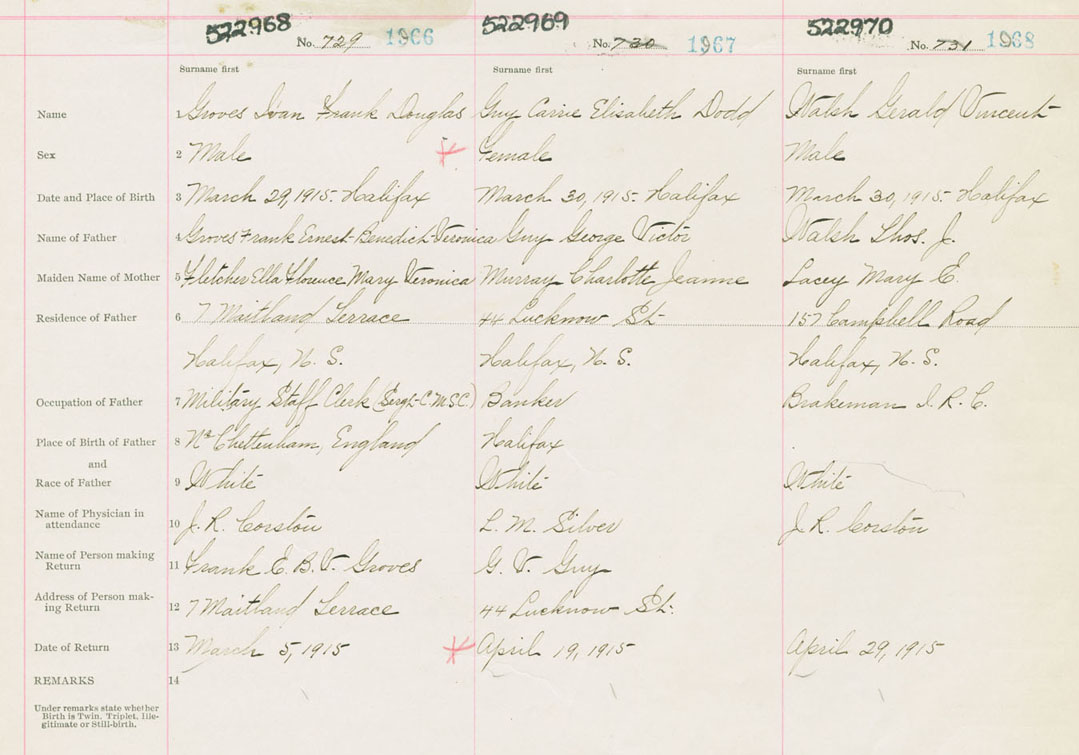 522968 522969 522970
No. 729 1966 No. 730 1967 No. 731 1968
Surname first Surname first Surname first
Name 1 Groves Ivan Frank Douglas Guy Carrie Elisabeth Dodd Walsh Gerald Vincent
Sex 2 Male Female Male
Date and Place of Birth 3 March 29, 1915 - Halifax March 30, 1915 - Halifax March 30, 1915 - Halifax
Name of Father 4 Groves Frank Ernest Benedict Veronica Guy George Victor Walsh Thos. J.
Maiden Name of Mother 5 Fletcher Ella Florence Mary Veronica Murray Charlotte Jeanne Lacey Mary E.
Residence of Father 6 7 Maitland Terrace 44 Lucknow St. 157 Campbell Road
Halifax, N. S. Halifax, N. S. Halifax, N. S.
Occupation of Father 7 Military Staff Clerk (Sergt - C.M.S.C.) Banker Brakeman I. R. C.
Place of Birth of Father 8 Nr Cheltenham, England Halifax
and
Race of Father 9 White White White
Name of Physician in
attendance 10 J. R. Corston L. M. Silver J. R. Corston
Name of Person making
Return 11 Frank E. B. V. Groves G. V. Guy
Address of Person mak-
ing Return 12 7 Maitland Terrace 44 Lucknow St.
Date of Return 13 March 5, 1915 April 19, 1915 April 29, 1915
REMARKS 14
Under remarks state whether
Birth is Twin, Triplet, Ille-
gitimate or Still-birth.